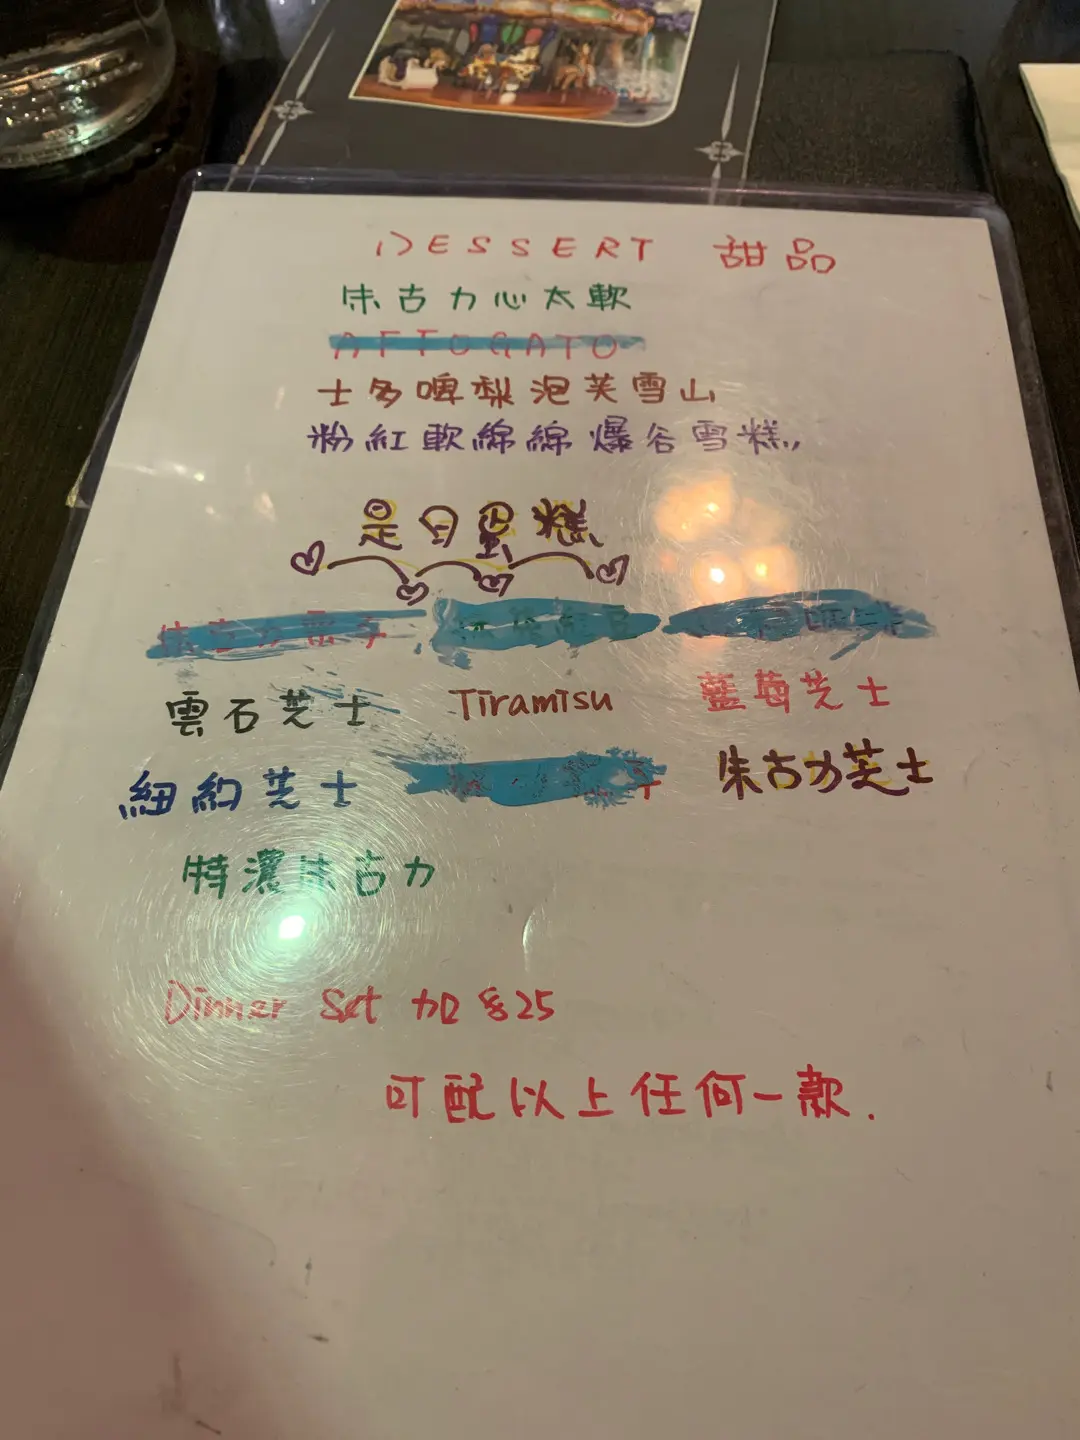 DESSERT 甜品
朱古力心太軟
AFFOGATO
士多啤梨泡芙雪山
粉紅軟綿綿爆谷雪糕
是日蛋糕
雲石芝士 Tiramisu 藍莓芝士
紐約芝士 朱古力芝士
特濃朱古力
Dinner Set 加$25
可配以上任何一款.